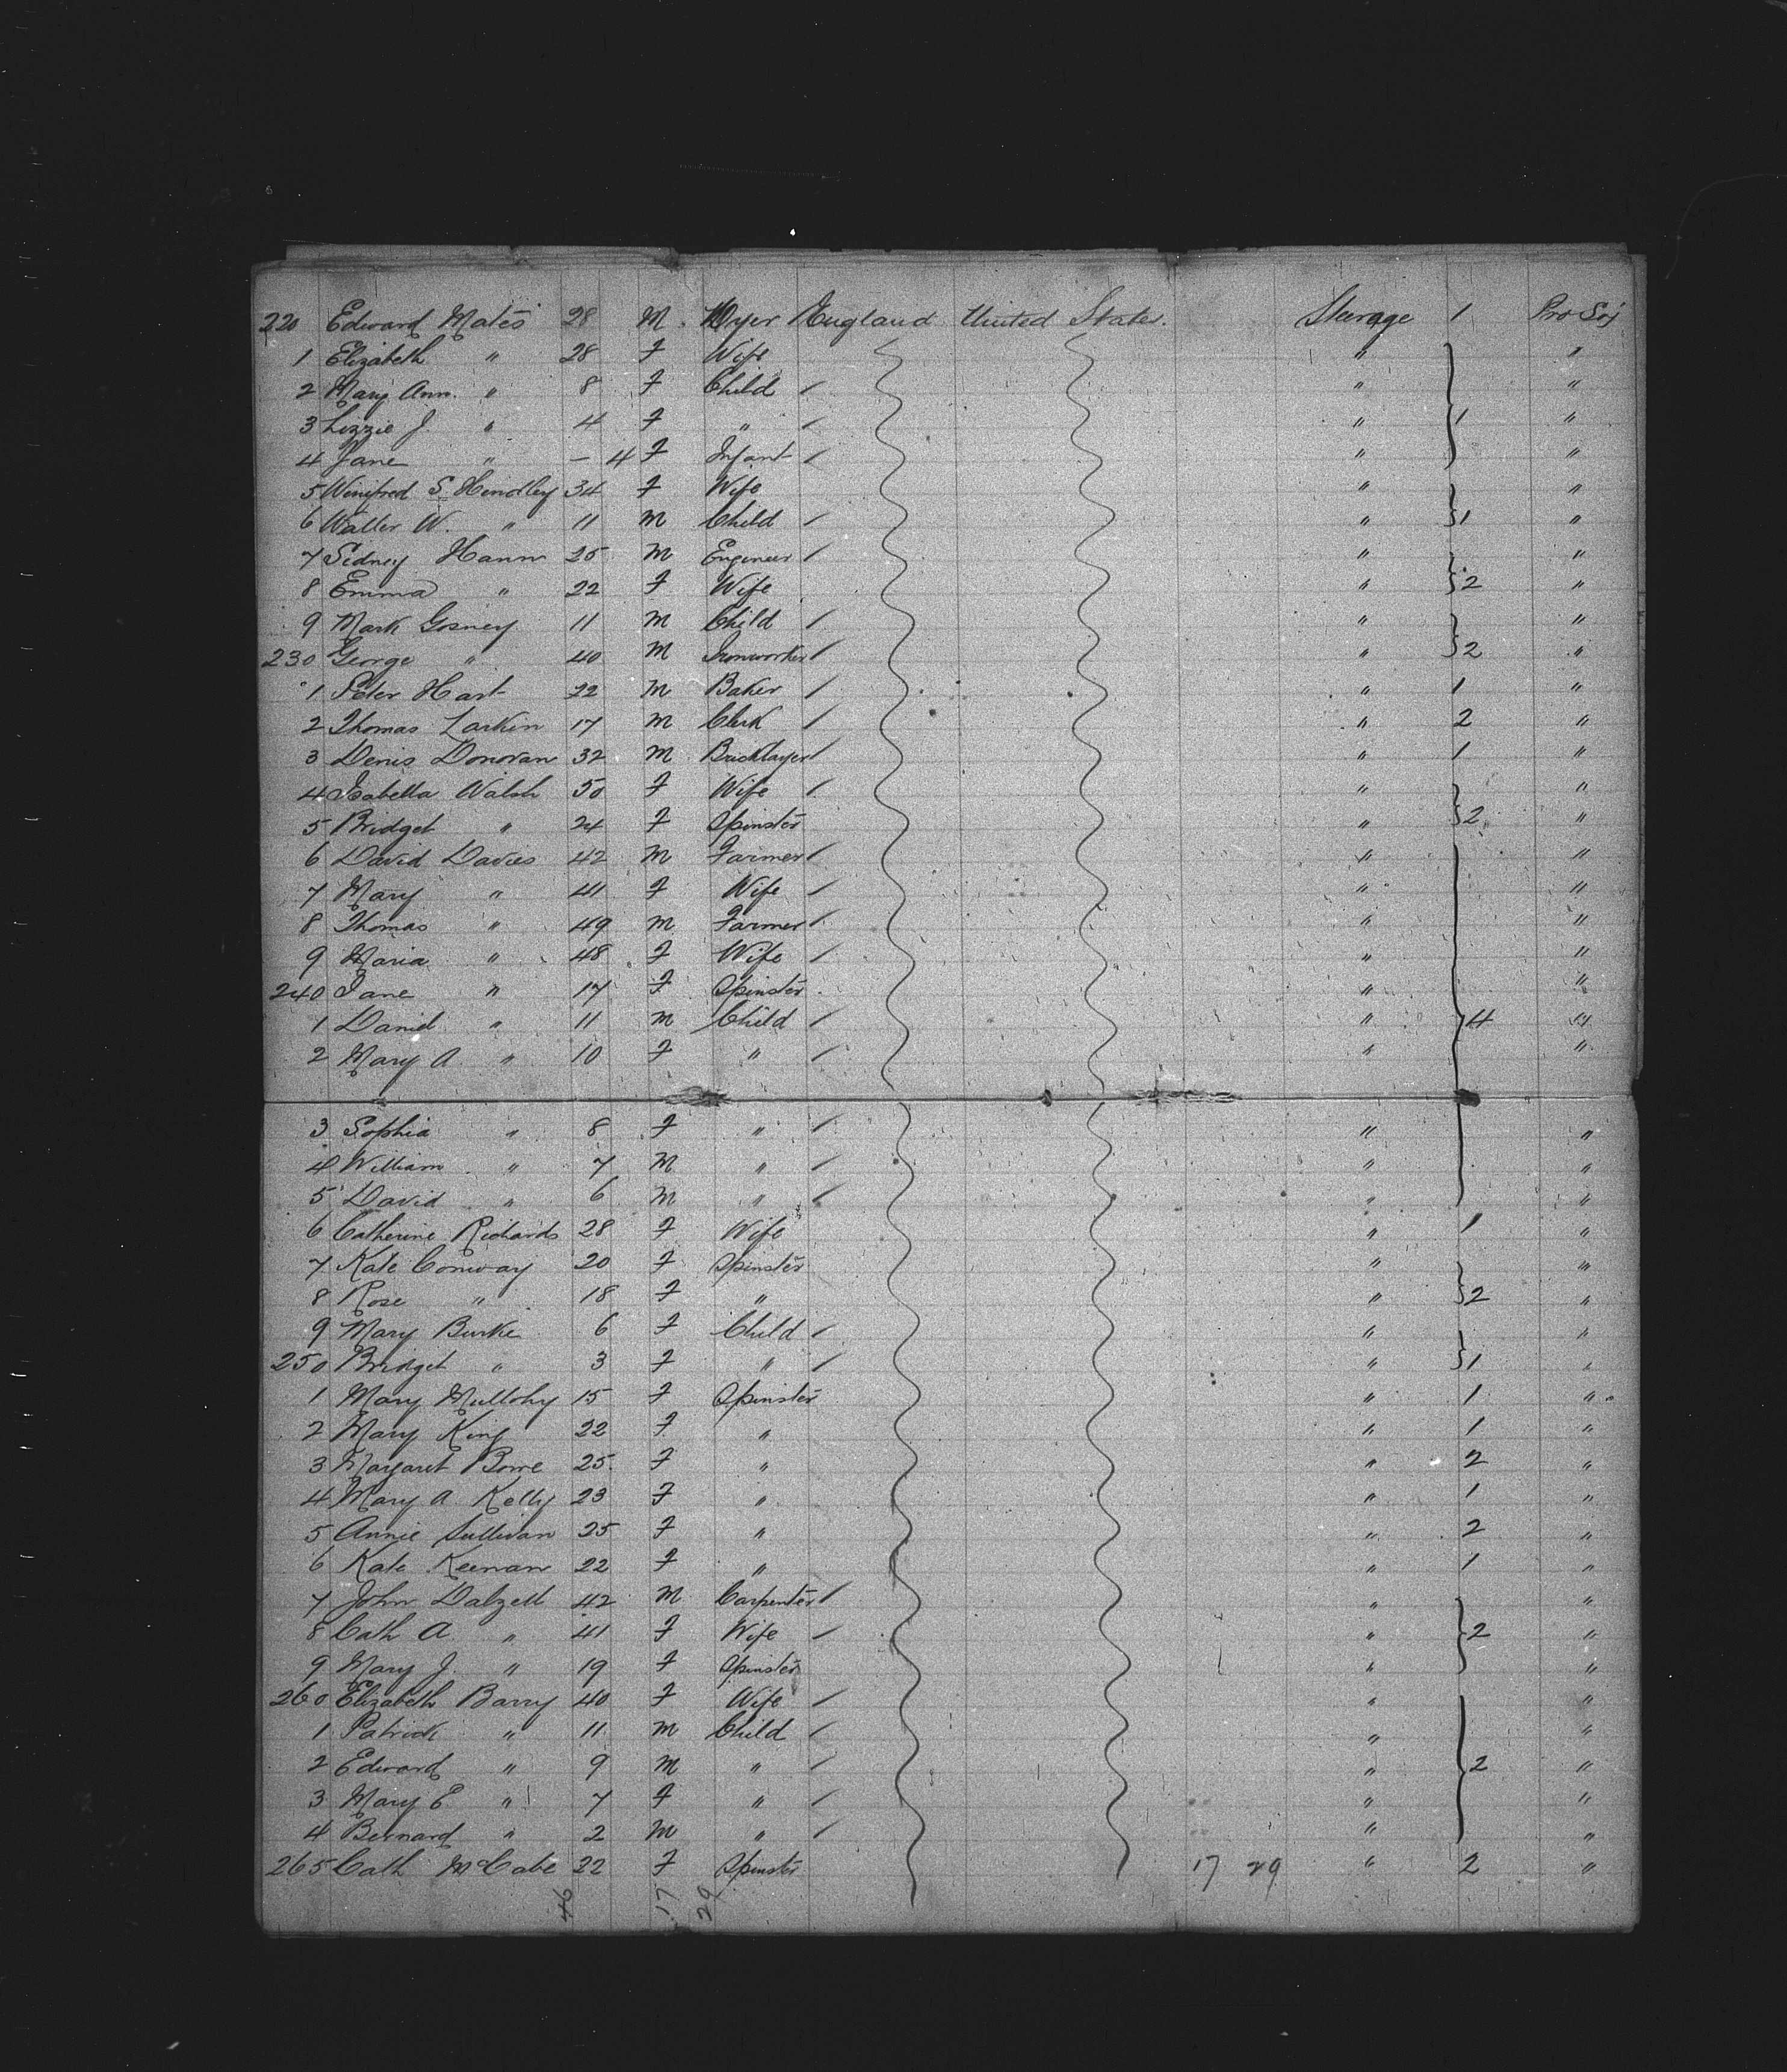 220 Edward Mates 28 M. Dyer England United States. Steerage 1 Pro Soj
1 Elizabeth " 28 F Wife " "
2 Mary Ann. " 8 F Child / " "
3 Lizzie J. " 4 F " / " 1 "
4 Jane " - 4 F Infant / " "
5 Winifred S. Hindley 34 F Wife " "
6 Walter W. " 11 M Child / " 1 "
7 Sidney Hann 25 M Engineer / " "
8 Emma " 22 F Wife " 2 "
9 Mark Gosney 11 M Child / " "
230 George " 40 M Ironworker / " 2 "
1 Peter Hart 22 M Baker / " 1 "
2 Thomas Larkin 17 M Clerk / " 2 "
3 Denis Donovan 32 M Bricklayer / " 1 "
4 Isabella Walsh 50 F Wife / " "
5 Bridget " 24 F Spinster " 2 "
6 David Davies 42 M Farmer / " "
7 Mary " 41 F Wife / " "
8 Thomas " 49 M Farmer / " "
9 Maria " 48 F Wife / " "
240 Jane " 17 F Spinster " "
1 Daniel " 11 M Child / " 4 "
2 Mary A " 10 F " / " "
3 Sophia " 8 F " / " "
4 William " 7 M " / " "
5 David " 6 M " / " "
6 Catherine Richards 28 F Wife " 1 "
7 Kate Conway 20 F Spinster " "
8 Rose " 18 F " " 2 "
9 Mary Burke 6 F Child / " "
250 Bridget " 3 F " / " 1 "
1 Mary Mullohy 15 F Spinster " 1 "
2 Mary King 22 F " " 1 "
3 Margaret Bowe 25. F " " 2 "
4 Mary A Kelly 23 F " " 1 "
5 Annie Sullivan 25 F " " 2 "
6 Kate Keenan 22 F " " 1 "
7 John Dalzell 42 M Carpenter / " "
8 Cath A. " 41 F Wife / " 2 "
9 Mary J. " 19 F Spinster " "
260 Elizabeth Barry 40 F Wife / " "
1 Patrick " 11 M Child / " "
2 Edward " 9 M " / " 2 "
3 Mary E. " 7 F " / " "
4 Bernard " 2 M " / " "
265 Cath McCabe 22 F Spinster 17 29 " 2 "
46 17 29